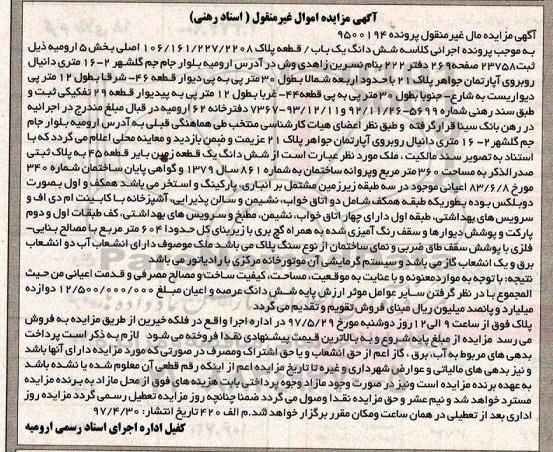 آگهی مزایده اموال غیرمنقول ( اسناد رهنی)
آگهی مزایده مال غیرمنقول پرونده ۹۵۰۰۱۹۴
به موجب پرونده اجرائی کلاسه شش دانگ یک باب / قطعه پلاک ۱۰۶/۱۶۱/۲۲۷/۲۲۰۸ اصلی بخش ۵ ارومیه ذیل
ثبت ۲۳۷۵۸ صفحه ۲۶۹ دفتر ۲۲۲ بنام نسرین زاهدی وش در آدرس ارومیه بلوار جام جم گلشهر ۲- ۱۶ متری دانیال
روبروی آپارتمان جواهر پلاک ۲۱ با حدود اربعه شمالا بطول ۳۰ متر پی به پی دیوار قطعه ۴۶- شرقا بطول ۱۲ متر پی
دیواریست به شارع- جنوبا بطول ۳۰ متر پی به پی قطعه ۴۴- غربا بطول ۱۲ متر پی به پی دیوار قطعه ۲۹ تفکیکی ثبت و
طبق سند رهنی شماره ۵۶۹۹-۹۲/۱۱/۲۶ و ۷۳۶۷-۹۳/۱۲/۱۱ دفترخانه ۶۲ ارومیه در قبال مبلغ مندرج در اجرائیه
در رهن بانک سینا قرار گرفته و طبق نظر اعضای هیات کارشناسی منتخب طی هماهنگی قبلی به آدرس ارومیه بلوار جام
جم گلشهر ۲- ۱۶ متری دانیال روبروی آپارتمان جواهر پلاک ۲۱ عزیمت و ضمن بازدید و معاینه محلی اعلام می گردد که با
استناد به تصویر سند مالکیت ، ملک مورد نظر عبارت است از شش دانگ یک قطعه زمین بایر قطعه ۴۵ به پلاک ثبتی
صدر الذکر به مساحت ۳۶۰ متر مربع و پروانه ساختمان به شماره ۸۶۱ سال ۱۳۷۹ و گواهی پایان ساختمان شماره ۳۴۰
مورخ ۸۳/۶/۸ اعیان موجود در سه طبقه زیرزمین مشتمل بر انباری، پارکینگ و استخر می باشد همکف و اول بصورت
دوبلکس بوده بطوریکه طبقه همکف شامل دو اتاق خواب، نشیمن و سالن پذیرایی، آشپزخانه با کابینت ام دی اف و
سرویس های بهداشتی، طبقه اول دارای چهار اتاق خواب، نشیمن، مطبخ و سرویس های بهداشتی، کف طبقات اول و دوم
پارکت و پوشش دیوارها و سقف رنگ آمیزی شده به همراه گچ بری با زیربنای کل حدودا ۶۰۴ متر مربع با مصالح بنایی-
فلزی با پوشش سقف طاق ضربی و نمای ساختمان از نوع سنگ پلاک می باشد ملک موصوف دارای انشعاب آب دو انشعاب
برق و یک انشعاب گاز می باشد و سیستم گرمایشی آن موتورخانه مرکزی با رادیاتور می باشد
نتیجه: با توجه به موارد معنونه و با عنایت به موقعیت، مساحت، کیفیت ساخت و مصالح مصرفی و قدمت اعیانی من حیث
المجموع با در نظر گرفتن سایر عوامل موثر ارزش پایه شش دانگ عرصه و اعیان مبلغ ۱۲/۵۰۰/۰۰۰/۰۰۰ دوازده
میلیارد و پانصد میلیون ریال مبنای فروش تقویم و تقدیم می گردد
پلاک فوق از ساعت ۹ الی ۱۲ روز دوشنبه مورخ ۹۷/۵/۲۹ در اداره اجرا واقع در فلکه خیرین از طریق مزایده به فروش
می رسد مزایده از مبلغ پایه شروع و به بالاترین قیمت پیشنهادی نقدا فروخته می شود لازم به ذکر است پرداخت
بدهی های مربوط به آب، برق ، گاز اعم از حق انشعاب و یا حق اشتراک و مصرف در صورتی که مورد مزایده دارای آنها باشد
و نیز بدهی های مالیاتی و عوارض شهرداری و غیره تا تاریخ مزایده اعم از اینکه رقم قطعی آن معلوم شده یا نشده باشد
به عهده برنده مزایده است و نیز در صورت وجود مازاد وجوه پرداختی بابت هزینه های فوق از محل مازاد به برنده مزایده
مسترد خواهد شد و نیم عشر و حق مزایده نقدا وصول می گردد ضمنا چنانچه روز مزایده تعطیل رسمی گردد مزایده روز
اداری بعد از تعطیلی در همان ساعت و مکان مقرر برگزار خواهد شد. م الف ۴۲۰ تاریخ انتشار: ۹۷/۴/۳۰
کفیل اداره اجرای اسناد رسمی ارومیه